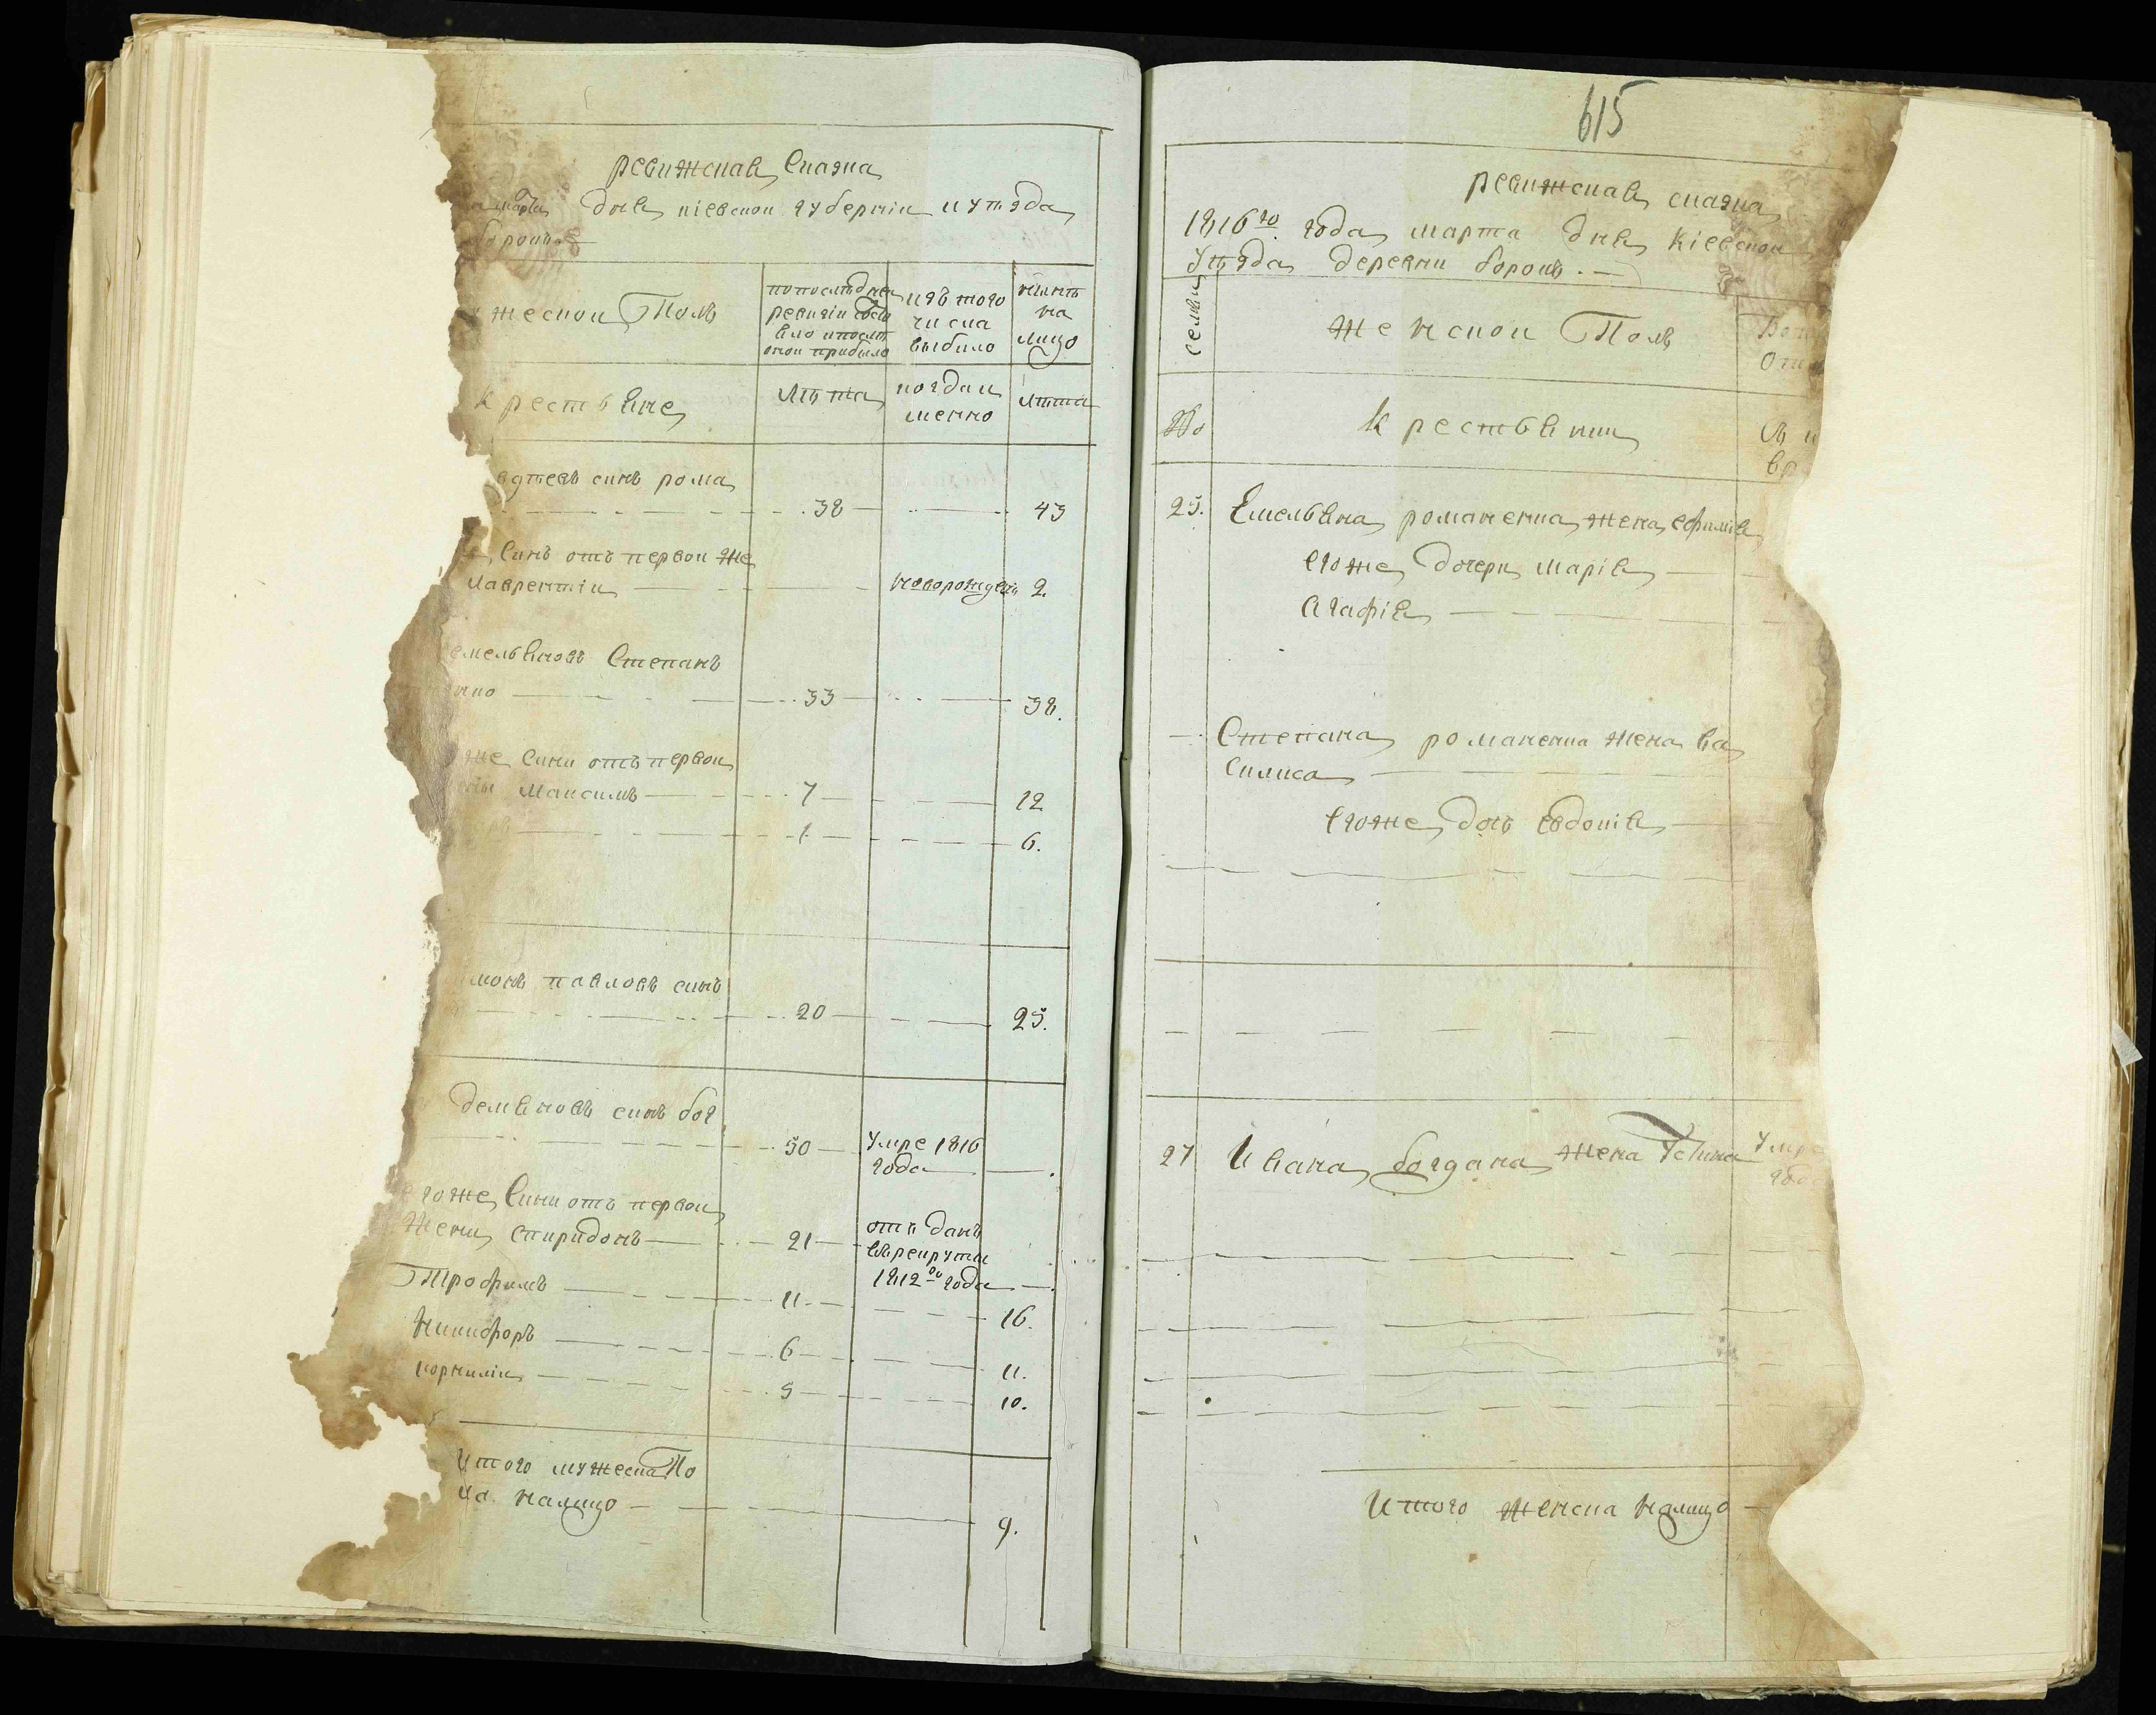 ревижская сказка
марта дня кіевскои губерніи и уезда
борокъ
жескои Полъ
попоследнеи
ревизіи состо
яло ипосле
онои прибыло
изъ того
числа
выбыло
ныне
на
лицо
крестьяне
лета
когда и
менно
лета
сынъ рома
38
43
сынъ отъ первои же
лаврентіи
новорожденъ
2.
емельяновъ Степанъ
нко
33
38.
же сыни отъ первои
ны максимъ
7
12
1
6.
монъ павловъ сынъ
20
25.
демяновъ сынъ бог
50
умре 1816
года
егоже сыни отъ первои
жени спиридонъ
21
отъданъ
врекрути
1812го года
Трофимъ
11
16.
никифоръ
6
11.
корниліи
5
10.
итого мужеска По
ла налицо
9.
615
ревижская сказка
1816го года марта дня кіевскои
уезда деревни борокъ
семьи
женскои Полъ
№
крестьянки
25. Емельяна романенка жена ефимія
егоже дочери марія
агафія
Степана романенка жена ва
силиса
егоже дочь евдокія
27 Ивана богдана жена Устина
умре
года
итого женска налицо